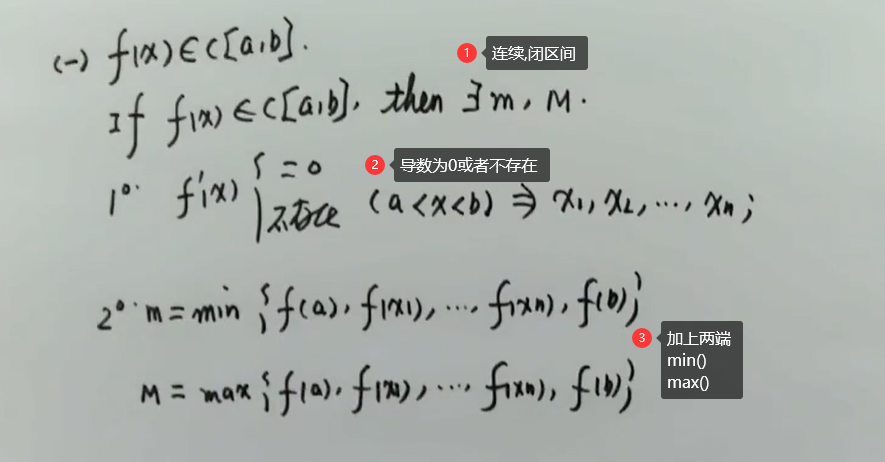 (一) f(x)∈C[a,b].
1 连续,闭区间
If f(x)∈C[a,b], then ∃ m, M.
2 导数为0或者不存在
1°. f'(x) { =0 不存在 (a<x<b) ⇒ x₁, x₂, …, xₙ;
2°. m = min {f(a), f(x₁), …, f(xₙ), f(b)}
3 加上两端
min()
max()
M = max {f(a), f(x₁), …, f(xₙ), f(b)}